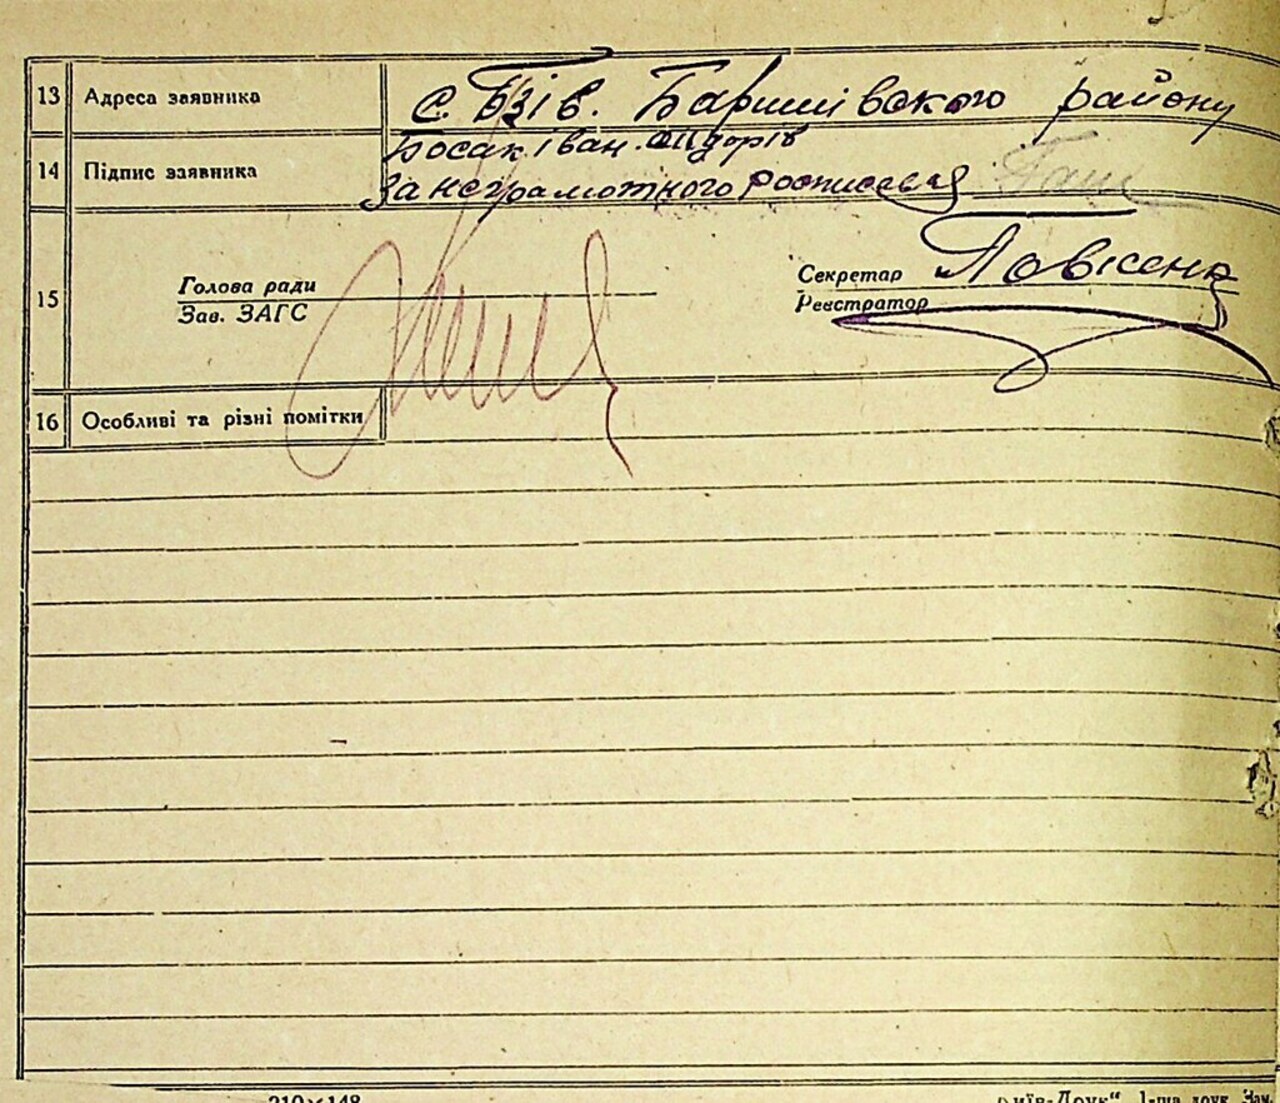 13 Адреса заявника с. Бзів. Баришівського району
14 Підпис заявника Босак Іван
За неграмотного росписався
15 Голова ради
Зав. ЗАГС
Секретар
Реєстратор
16 Особливі та різні помітки
210×148 1-ша друк. Зам.